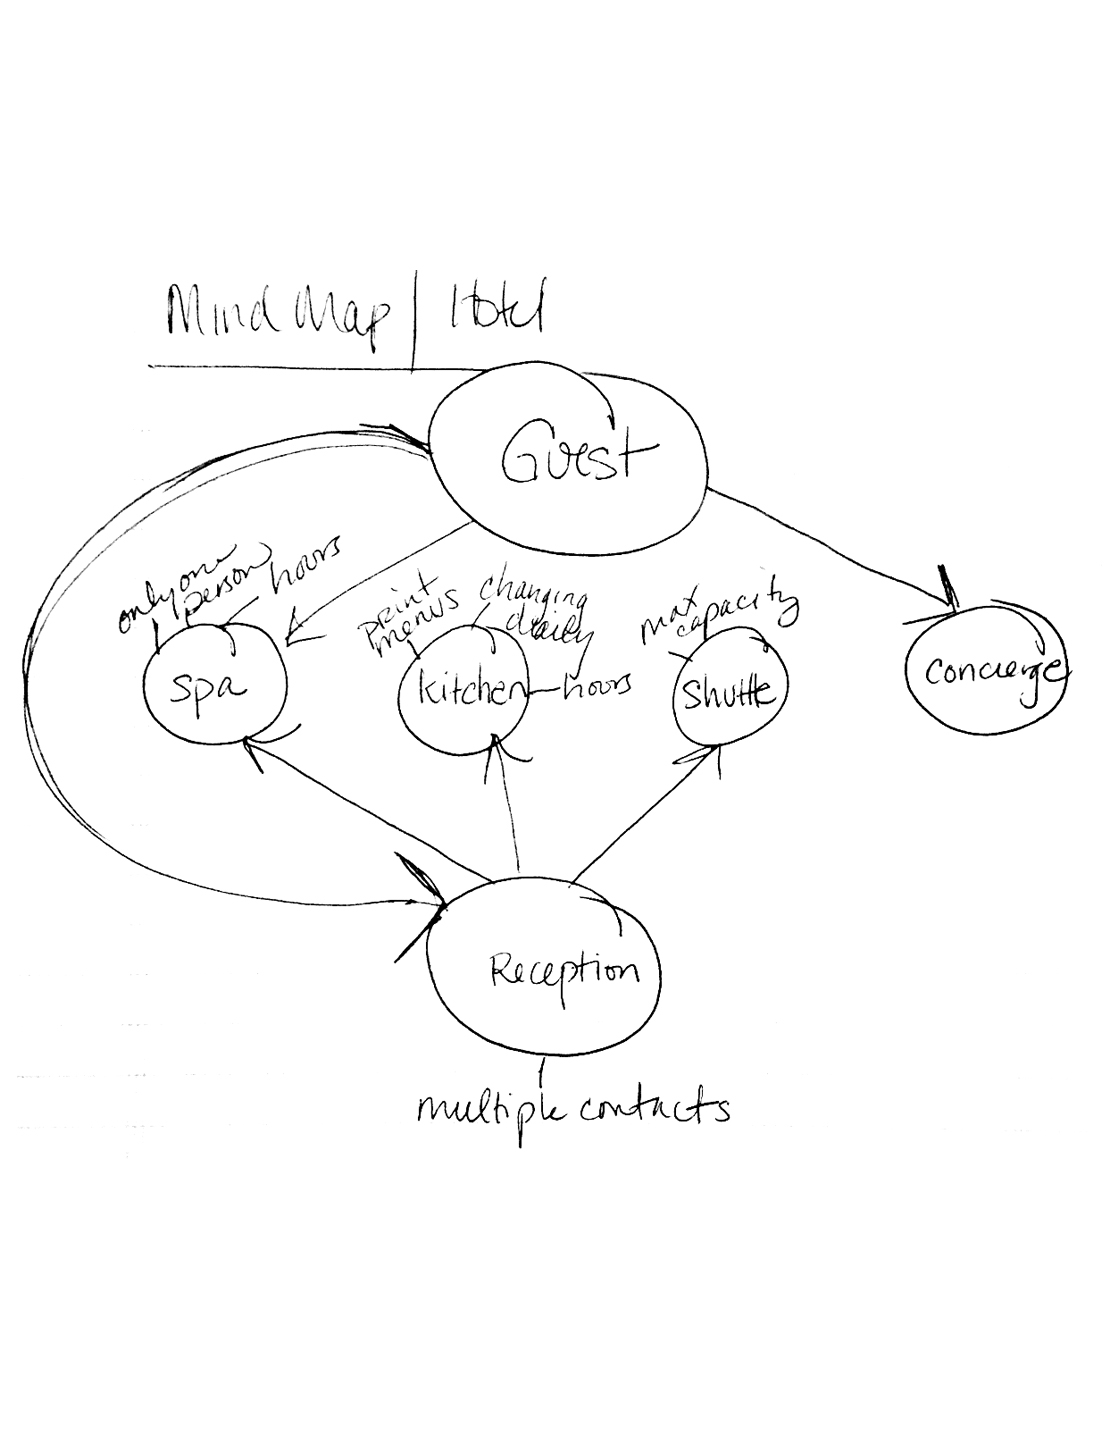 Mind Map | Hotel
Guest
only one
person
hours
print
menus
changing
daily
max
capacity
spa
kitchen
hours
Shuttle
Concierge
Reception
multiple contacts